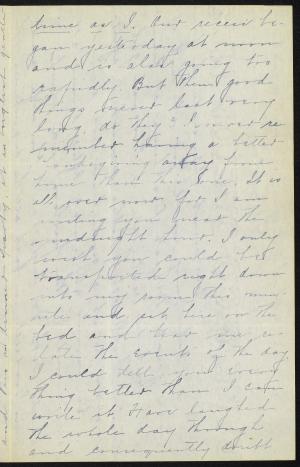 time as I. Our recess be-
gan yesterday at noon
and is also going too
rapidly. But then good
things never last very
long do they? I never re-
member having a better
Thanksgiving away from
home than this one. It is
all over now for I am
writing you near the
midnight hour. I only
wish you could be
transported right down
into my room this min-
ute and sit here on the
bed and hear me re-
late the events of the day.
I could tell you every
thing better than I can
write it. Have laughed
the whole day through
and consequently don't